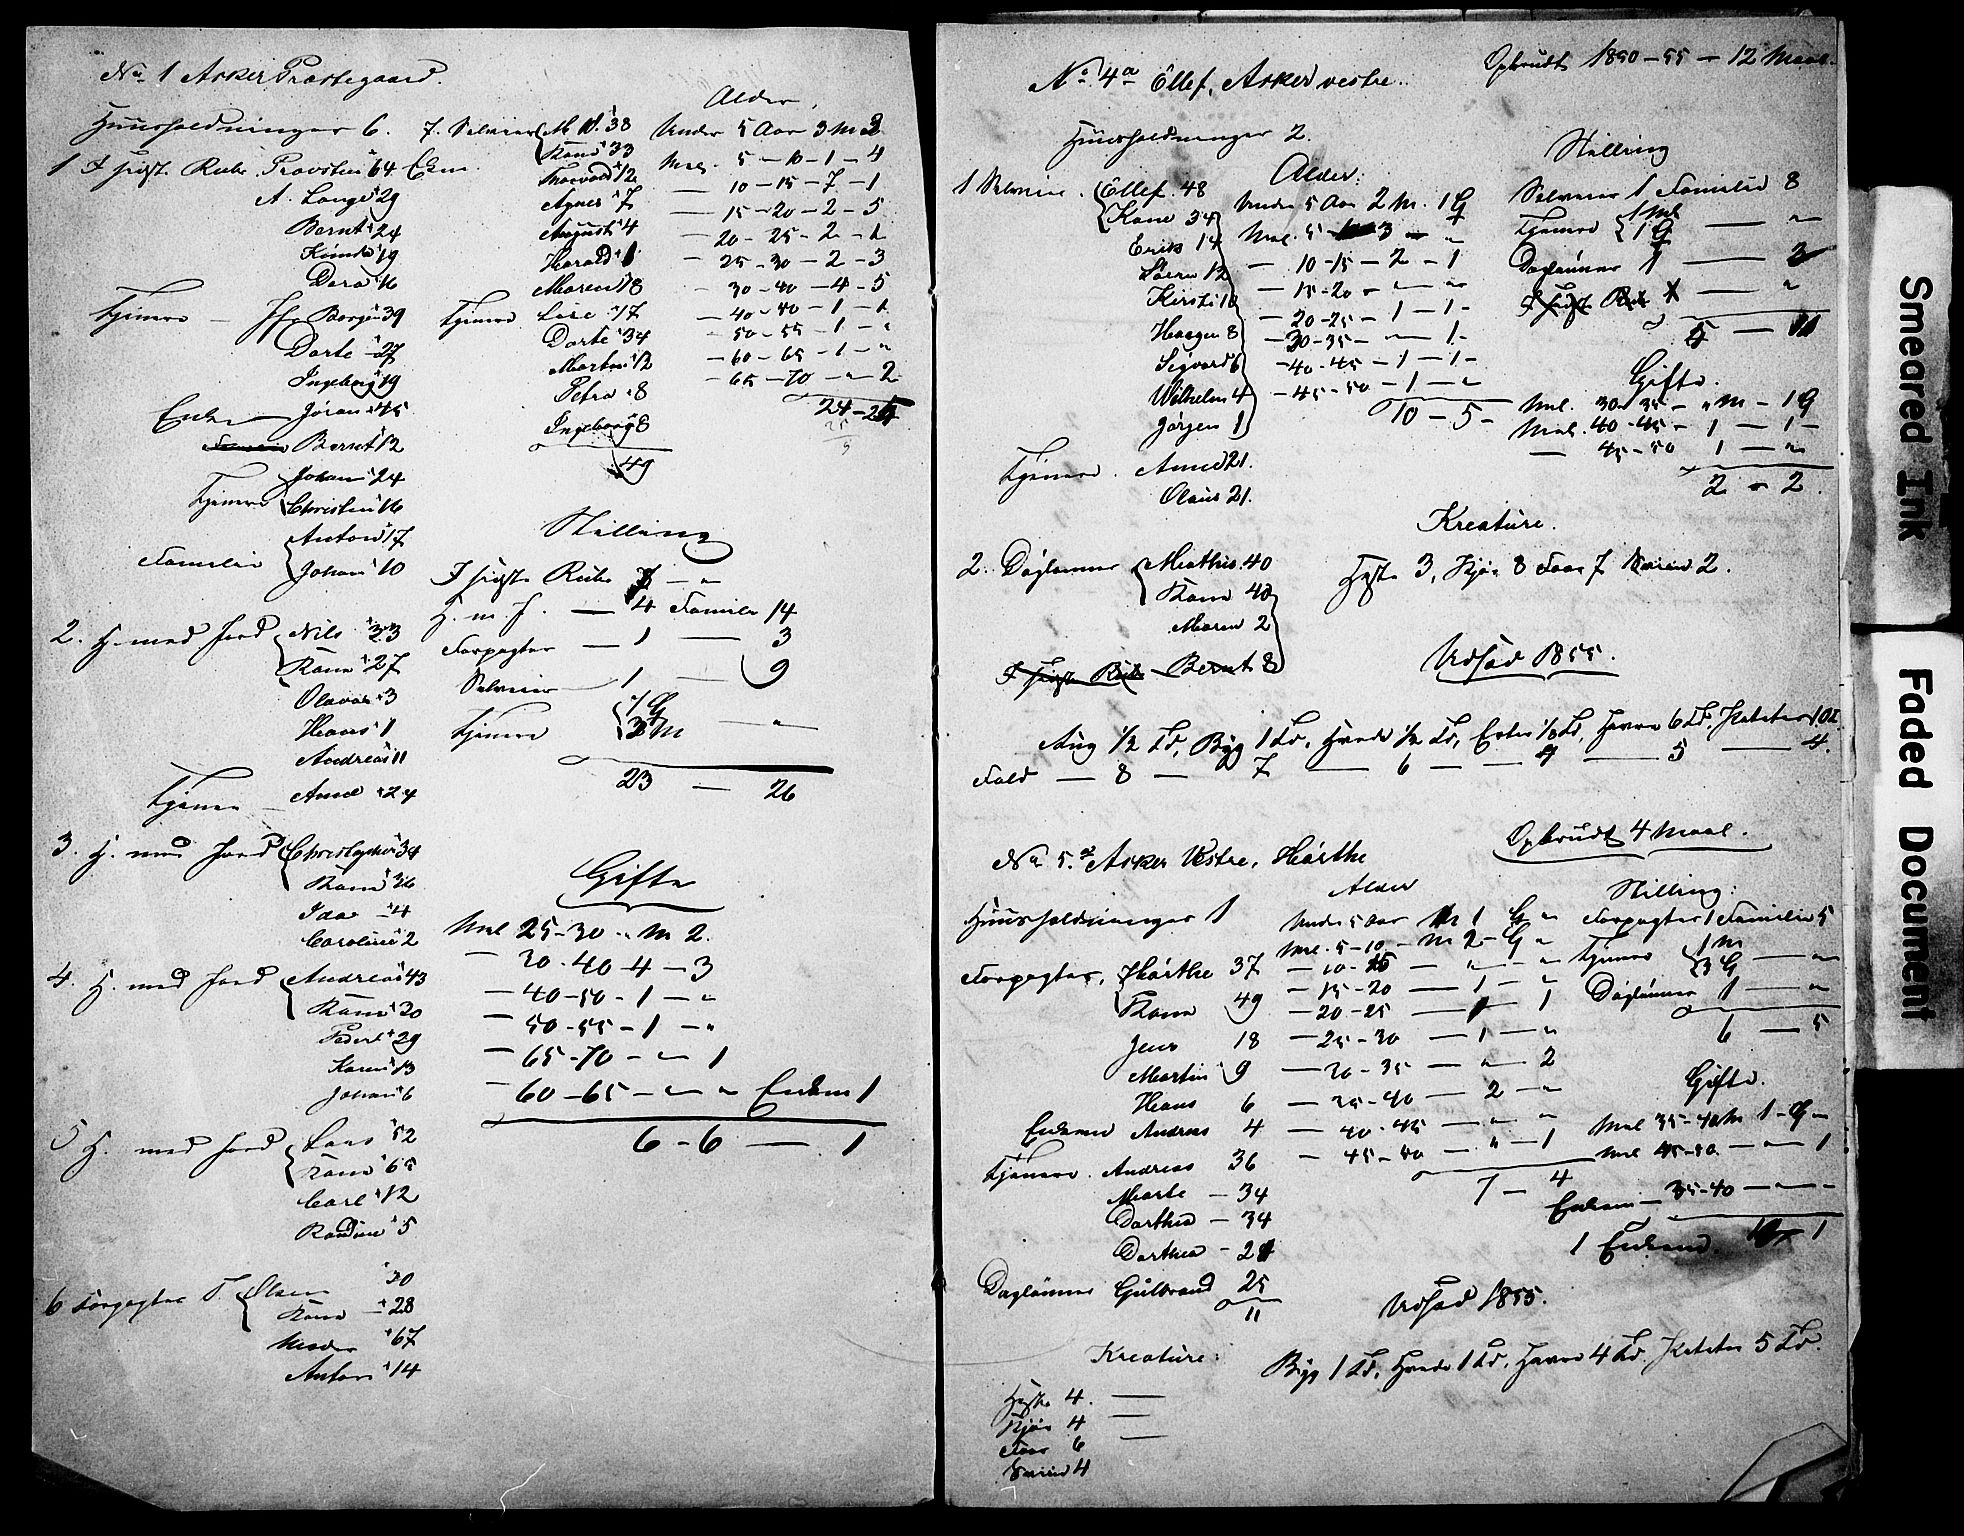 No 1 Asker Præstegaard.
Alder.
Huusholdninger 6.
1 I sidste Rubr. Provsten 64 Ekm
A. Lange 29
Bernt 24
19
16
Tjenere — Jfr Borge 39
Dorte 27
Ingeborg 19
Enke — Jøran 45
Bernt 12
Tjenere Johan 24
Christen 16
Familie Anton 17
Johan 10
2. H. med Jord Nils 33
Kone 27
Olava 3
Hans 1
Andreas 11
Tjener Anne 24
3. H. med Jord Christopher 34
Kone 36
Ida 4
Caroline 2
4. H. med Jord Andreas 43
Kone 30
Peder 29
Karen 13
Johan 6
5 H. med Jord Lars 52
Kone 65
Carl 12
Randine 5
6 Forpagter T. Olsen 30
Kone 28
Moder 67
Anton 14
7. Selveier 38
Kone 33
Thorvald 12
Agnes 7
August 4
Harald 1
Maren 18
Tjenere Lise 17
Dorte 34
Morten 12
Petra 8
Ingeborg 8
49
Under 5 Aar 3 M 2
Mel. 5 — 10 — 1 — 4
— 10 — 15 — 7 — 1
— 15 — 20 — 2 — 5
— 20 — 25 — 2 — 1
— 25 — 30 — 2 — 3
— 30 — 40 — 4 — 5
— 40 — 50 — 1 — 1
— 50 — 55 — 1 — "
— 60 — 65 — 1 — "
— 65 — 70 — " — 2
24 — 25
Stilling
I sidste Rubr. — "
H. m J. — 4 Familie 14
Forpagter — 1 — 3
Selveier — 1 — 9
Tjenere
3 M — "
23 — 26
Gifte
Mel 25-30 " M 2.
— 30-40 4 — 3
— 40-50 — 1 — "
— 50-55 — 1 — "
— 65-70 — " 1
— 60-65 — " — " Enkem 1
6 — 6 — 1
No 4a Ellef, Asker vestre.
Opbrudt 1850 — 55 — 12 Maal.
Huusholdninger 2.
1 Selveier Ellef 48
Kone 34
Erik 14
Søren 12
Kirsti 10
Haagen 8
Sigvard 6
Wilhelm 4
Jørgen 1
Tjenere. Anne 21.
Olaus 21.
Alder:
Under 5 Aar 2 M. 1 G
Mel. 5 — 3 — "
— 10-15 — 2 — 1
— 15-20 — " — "
— 20-25 — 1 — 1
— 30-35 — " — 1
— 40-45 — 1 — 1
— 45-50 — 1 — "
10 — 5
Stilling
Selveier 1 Familie 8
Tjenere 1 M
1 G — "
Daglønner 1 — 3
I sidste Rubr.
Gifte.
Mel. 30-35 — " M — 1 G
Mel. 40-45 — 1 — 1
— 45-50 1 — "
2 — 2.
2. Daglønner Mathis 40
Kone 40
Maren 2
I sidste Rubr. — Bernt 8
Kreature.
Heste 3, Kjør 8 Faar 7 Sviin 2.
Udsæd 1855.
Rug 1/2 Td, Byg 1 Td, Hvede 1/2 Td, Erter 1/8 Td, Havre 6 Td, Poteter 10 Td
Fold — 8 — 7 — 6 — 4 — 5 — 4.
Opbrudt 4 Maal.
No 5.a Asker Vestre, Hørthe
Huusholdninger 1
Forpagter, Hørthe 37
Kone 49
Jens 18
Martin 9
Hans 6
Enkemand Andreas 4
Tjenere. Andreas 36
Marte — 34
Dorthea — 34
Dorthea — 21
Daglønner Gulbrand 25
11
Alder
Under 5 Aar M 1 G "
Mel. 5-10 — M 2 — G "
— 10-15 — " — "
— 15-20 — 1 — "
— 20-25 — 1 — 1
— 25-30 — 1 — "
— 30-35 — " 2
— 35-40 — 2 — "
— 40-45 — " — "
— 45-50 — " — 1
7 — 4
Stilling:
Forpagter 1 Familie 5
Tjenere 1 M
3 G — "
Daglønner 1 — "
6 — 5
Gifte.
Mel 35-40 M 1 — G —
Mel 45-50 — " — 1
Enkem — 35-40 — " —
1 Enkemand.
Udsæd 1855.
Byg 1 Td, Hvede 1 Td, Havre 4 Td, Poteter 5 Td.
Kreature:
Heste 4. —
Kjør 4 —
Faar 6 —
Sviin 4
Smeared Ink
Faded Document